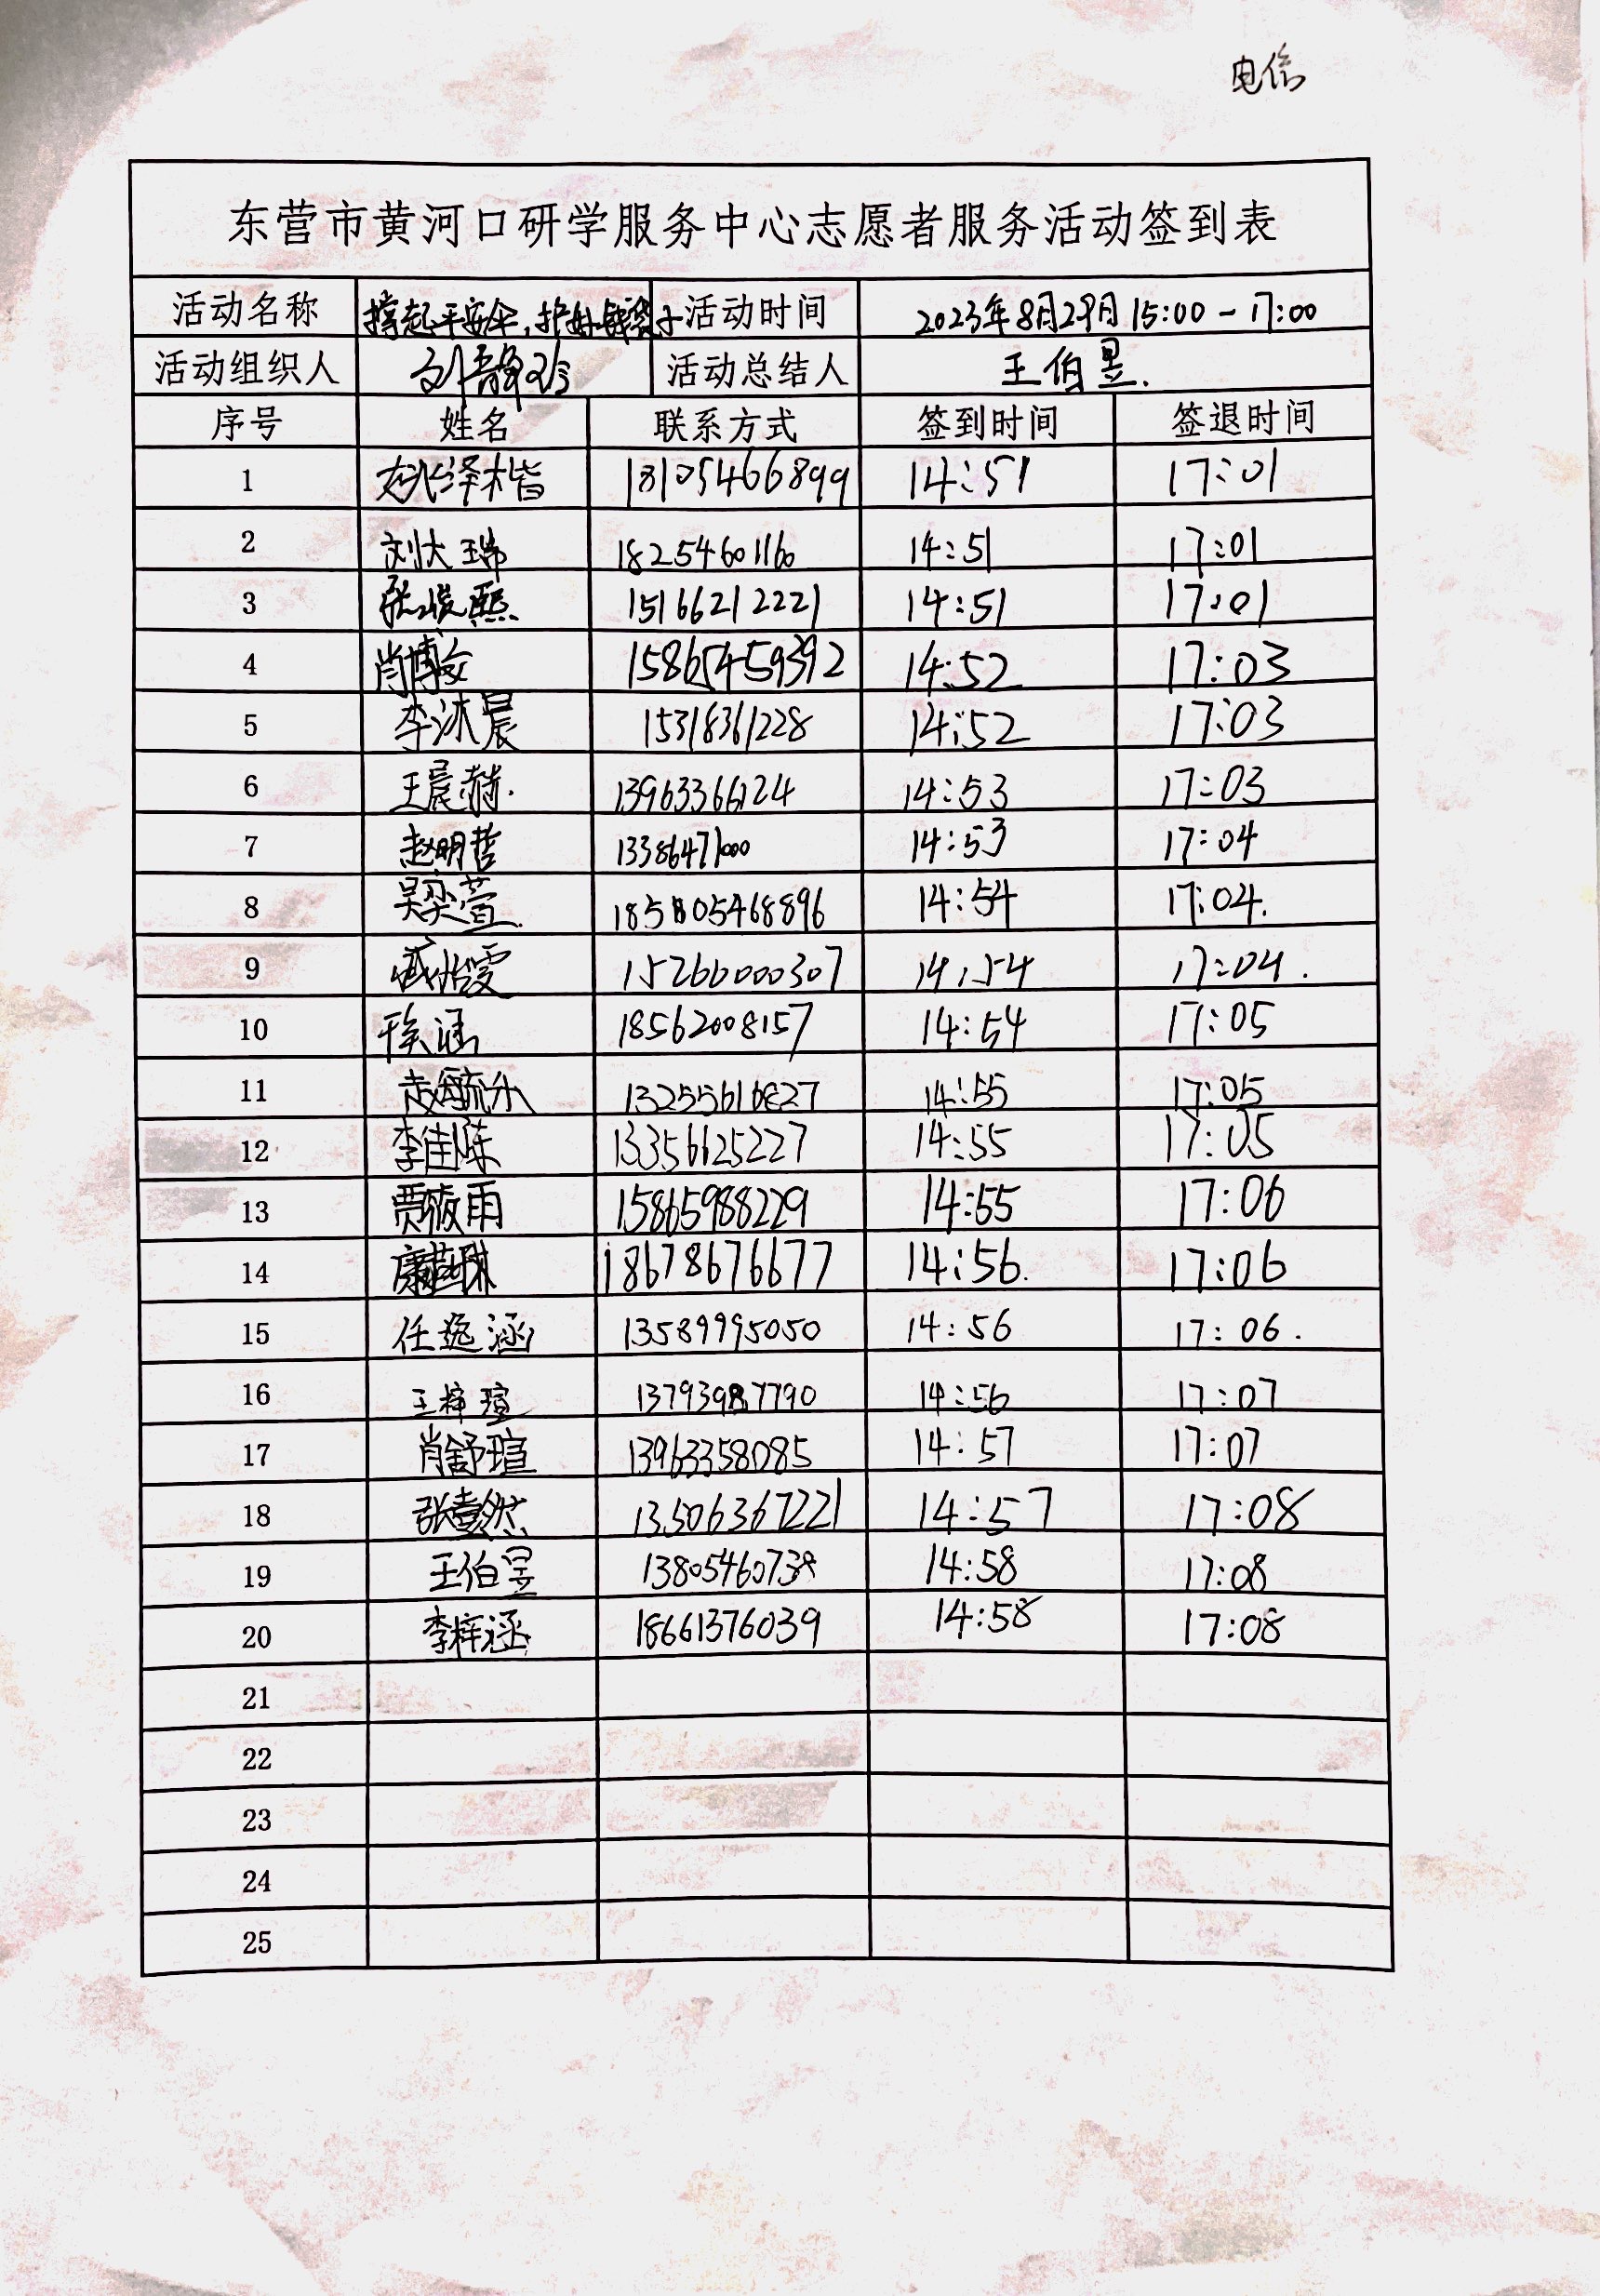 电信
东营市黄河口研学服务中心志愿者服务活动签到表
活动名称 撑起平安伞,护好钱袋子 活动时间 2023年8月29日 15:00-17:00
活动组织人 刘静玲 活动总结人 王伯昱.
序号 姓名 联系方式 签到时间 签退时间
1 姚泽楷 18105466899 14:51 17:01
2 刘大瑞 18254601160 14:51 17:01
3 张峻熙 15166212221 14:51 17:01
4 肖博文 15865459392 14:52 17:03
5 李沐晨 15318361228 14:52 17:03
6 王晨赫. 13963366124 14:53 17:03
7 赵明哲 13386471000 14:53 17:04
8 吴奕萱. 14:54 17:04.
9 臧怡雯 15266000307 14:54 17:04.
10 涵 18562008157 14:54 17:05
11 赵 13255616827 14:55 17:05
12 李佳陈 13356625227 14:55 17:05
13 贾薇雨 15865988229 14:55 17:06
14 康 琳 18678676677 14:56. 17:06
15 任逸涵 13589995050 14:56 17:06.
16 王梓瑄 13793987790 14:56 17:07
17 肖舒瑄 13963358085 14:57 17:07
18 张 然 13506367221 14:57 17:08
19 王伯昱 13805460738 14:58 17:08
20 李梓涵 18661376039 14:58 17:08
21
22
23
24
25